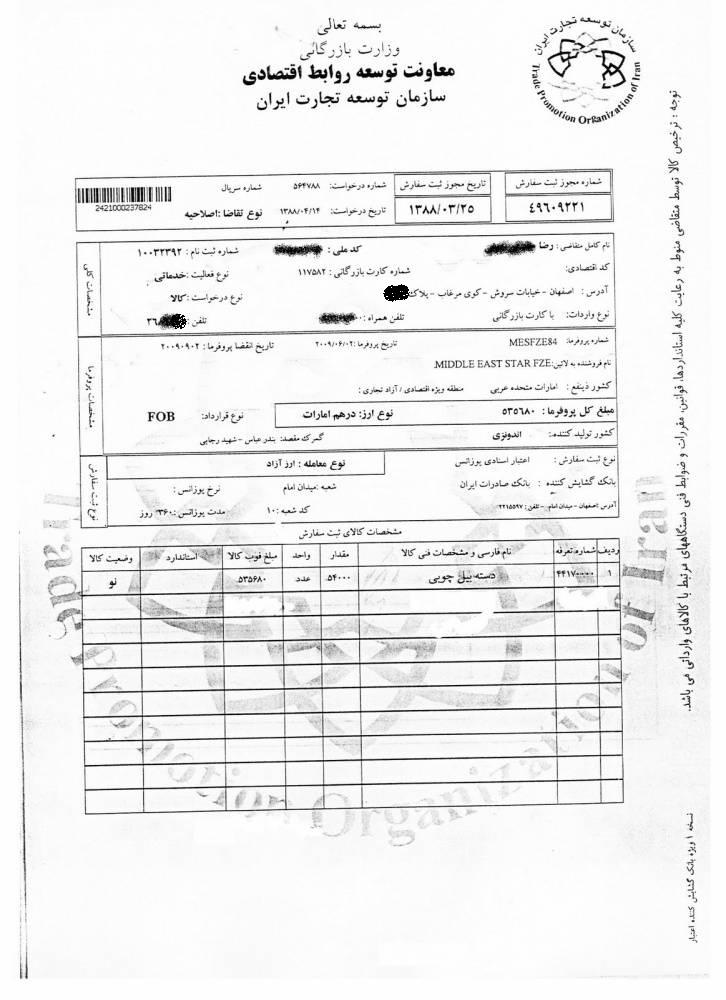 بسمه تعالی
وزارت بازرگانی
معاونت توسعه روابط اقتصادی
سازمان توسعه تجارت ایران
سازمان توسعه تجارت ایران
Trade Promotion Organization of Iran
شماره مجوز ثبت سفارش
٤٩٦٠٩٢٢١
تاریخ مجوز ثبت سفارش
۱۳۸۸/۰۳/۲۵
شماره درخواست: ۵۶۴۷۸۸
تاریخ درخواست: ۱۳۸۸/۰۴/۱۴
شماره سریال
2421000237824
نوع تقاضا :اصلاحیه
مشخصات کلی
نام کامل متقاضی : رضا
کد ملی :
شماره ثبت نام : ۱۰۰۳۲۳۹۲
کد اقتصادی:
شماره کارت بازرگانی : ۱۱۷۵۸۲
نوع فعالیت :خدماتی
آدرس : اصفهان - خیابات سروش - کوی مرغاب - پلاک
نوع درخواست :کالا
نوع واردات: با کارت بازرگانی
تلفن همراه :
تلفن :
مشخصات پروفرما
شماره پروفرما: MESFZE84
تاریخ پروفرما :۲۰۰۹/۰۶/۰۲
تاریخ انقضا پروفرما : ۲۰۰۹۰۹۰۲
نام فروشنده به لاتین:MIDDLE EAST STAR FZE.
کشور ذینفع : امارات متحده عربی
منطقه ویژه اقتصادی / آزاد تجاری :
مبلغ کل پروفرما : ۵۳۵۶۸۰
نوع ارز: درهم امارات
نوع قرارداد: FOB
کشور تولید کننده: اندونزی
گمرک مقصد: بندر عباس - شهید رجایی
نوع ثبت سفارش
نوع ثبت سفارش : اعتبار اسنادی یوزانس
نوع معامله : ارز آزاد
بانک گشایش کننده : بانک صادرات ایران
شعبه :میدان امام
نرخ یوزانس :
آدرس :اصفهان - میدان امام - تلفن: ۲۲۱۵۵۹۷
کد شعبه :۱۰
مدت یوزانس :۳۶۰ روز
مشخصات کالای ثبت سفارش
ردیف شماره تعرفه نام فارسی و مشخصات فنی کالا مقدار واحد مبلغ فوب کالا استاندارد وضعیت کالا
۱ ۴۴۱۷۰۰۰۰ دسته بیل چوبی ۵۴۰۰۰ عدد ۵۳۵۶۸۰ نو
Trade Promotion Organization of Iran
توجه : ترخیص کالا توسط متقاضی منوط به رعایت کلیه استانداردها، قوانین، مقررات و ضوابط فنی دستگاههای مرتبط با کالاهای وارداتی می باشد.
نسخه ۱ ویژه بانک گشایش کننده اعتبار